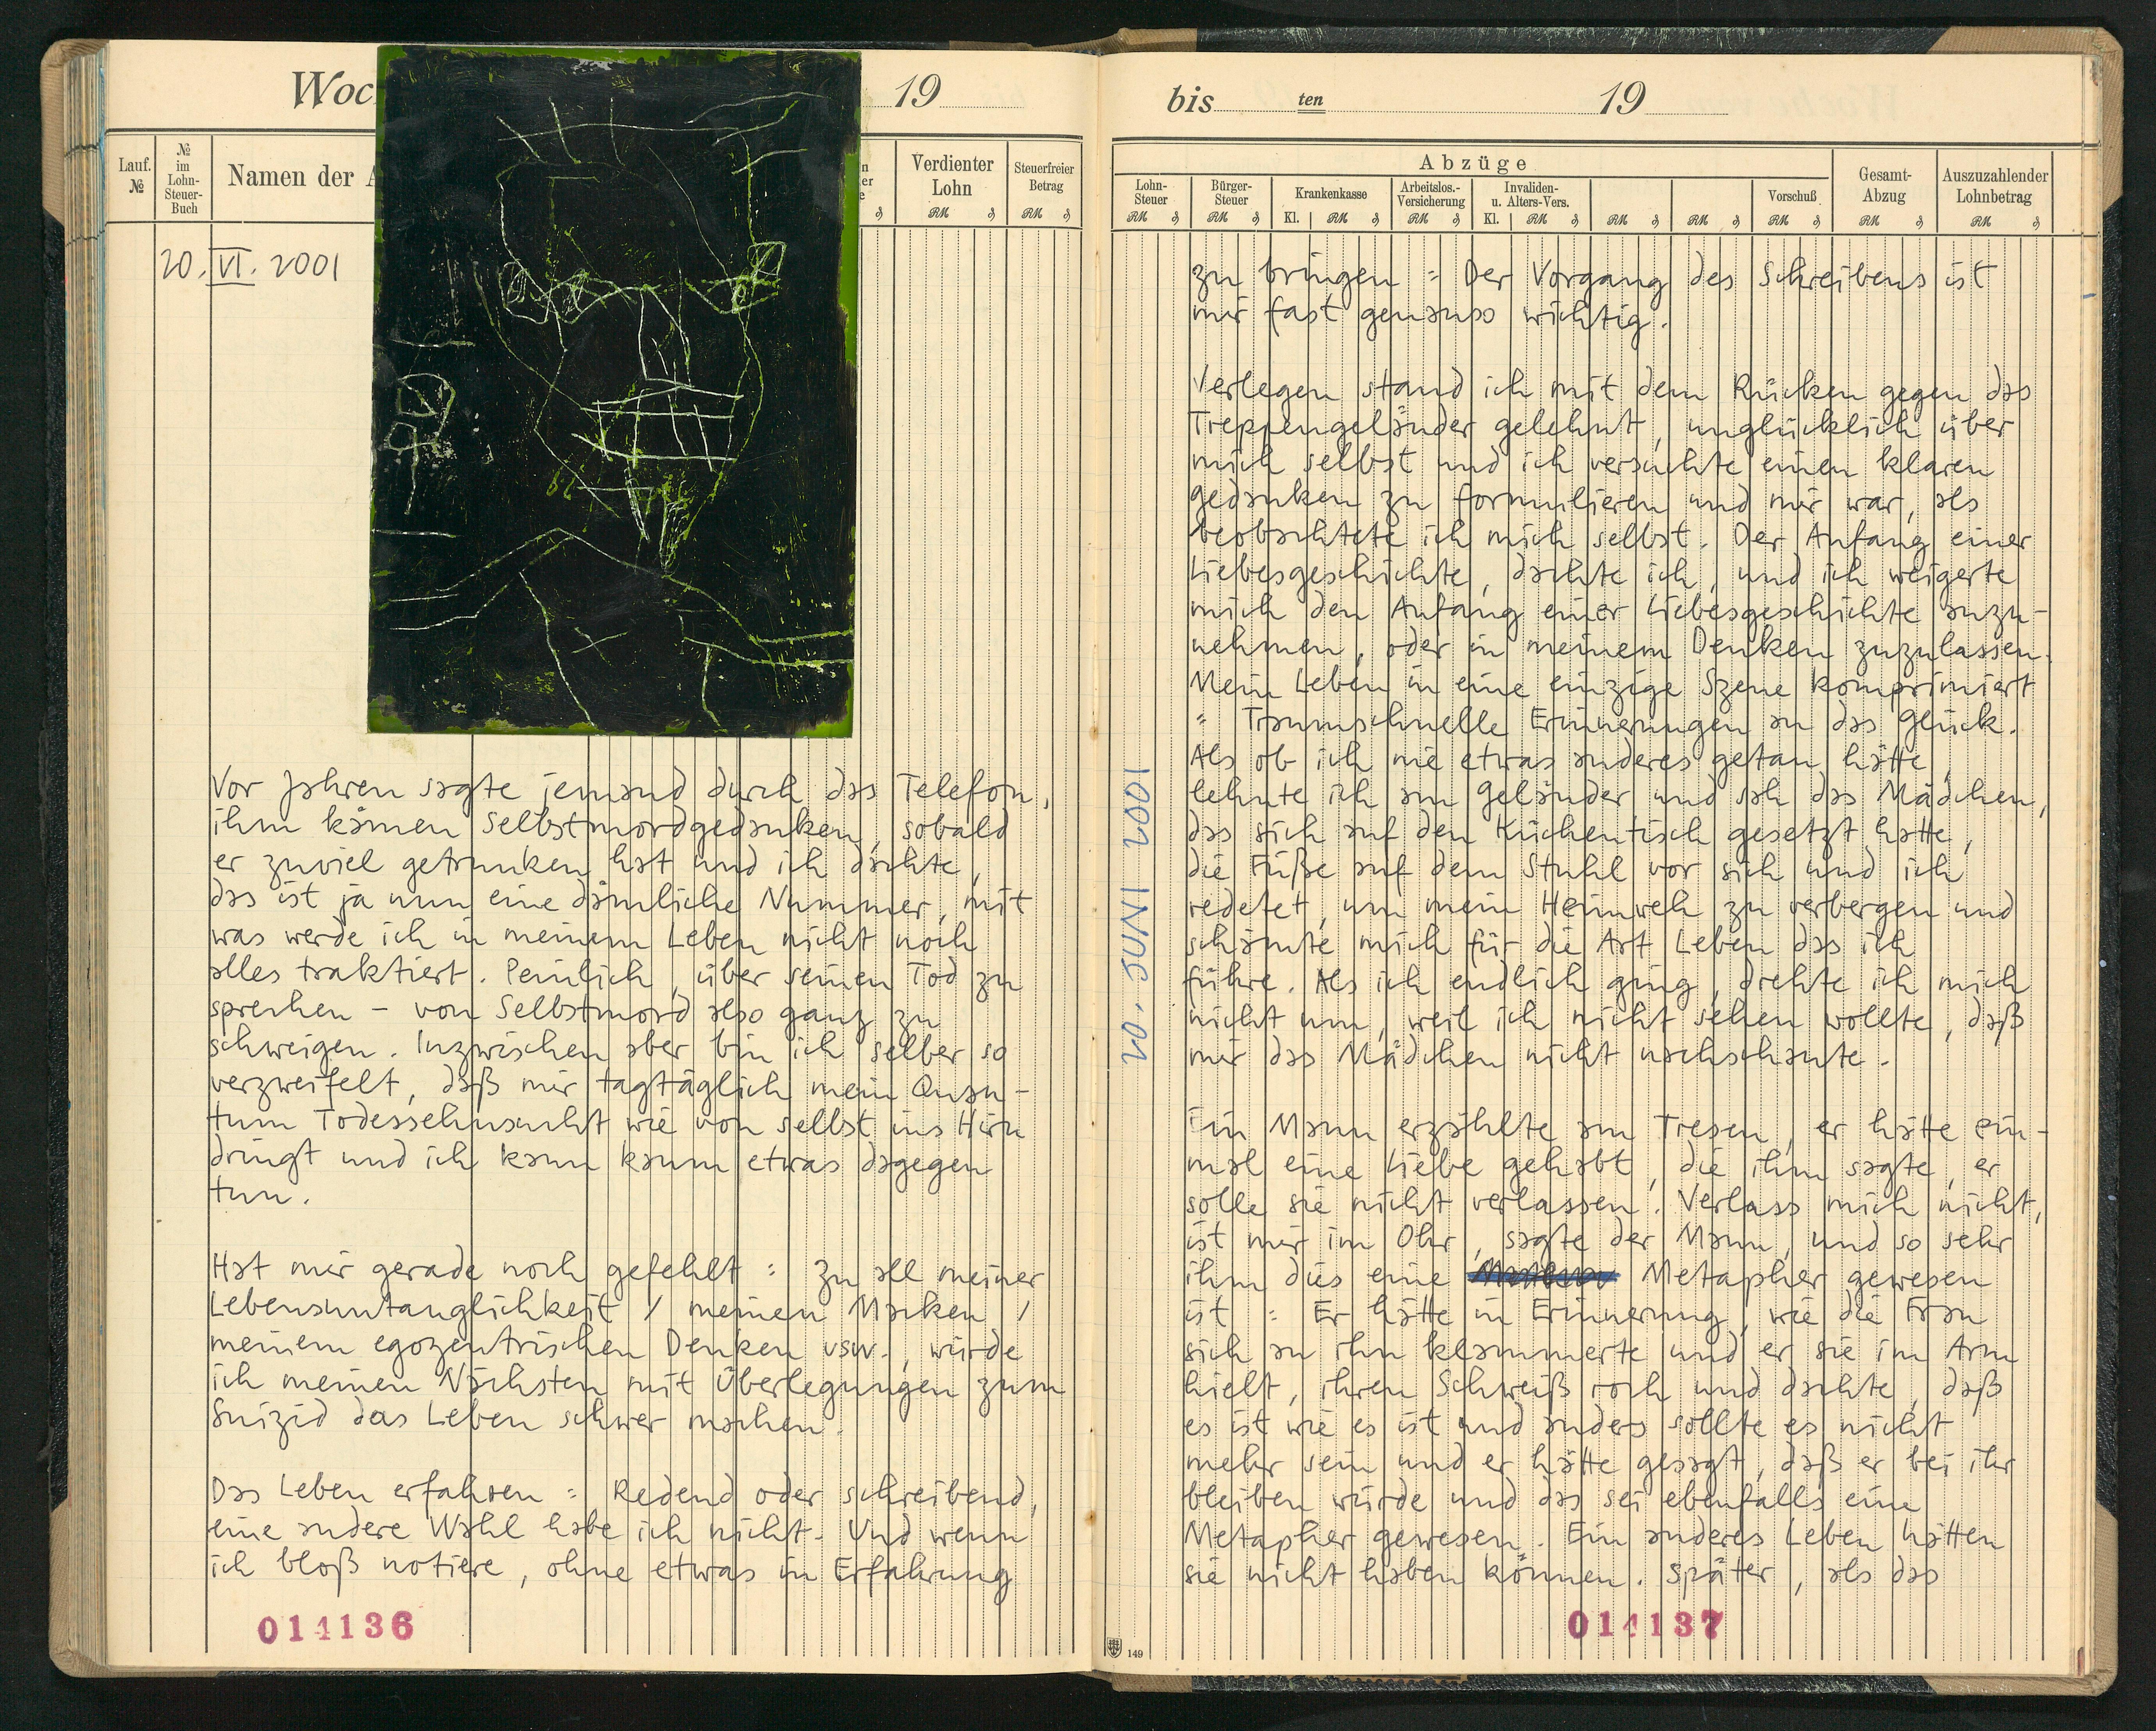 Woc
19
Lauf. №
№ im Lohn-Steuer-Buch
Namen der A
Verdienter Lohn
Steuerfreier Betrag
RM ₰
RM ₰
20. VI. 2001
Vor Jahren sagte jemand durch das Telefon,
ihm kämen Selbstmordgedanken, sobald
er zuviel getrunken hat und ich dachte,
das ist ja nun eine dämliche Nummer, mit
was werde ich in meinem Leben nicht noch
alles traktiert. Peinlich, über seinen Tod zu
sprechen – von Selbstmord also ganz zu
schweigen. Inzwischen aber bin ich selber so
verzweifelt, daß mir tagtäglich mein Quan-
tum Todessehnsucht wie von selbst ins Hirn
dringt und ich kann kaum etwas dagegen
tun.
Hat mir gerade noch gefehlt : zu all meiner
Lebensuntauglichkeit / meinen Macken /
meinem egozentrischen Denken usw., würde
ich meinen Nächsten mit Überlegungen zum
Suizid das Leben schwer machen.
Das Leben erfahren : Redend oder schreibend,
eine andere Wahl habe ich nicht. Und wenn
ich bloß notiere, ohne etwas in Erfahrung
014136
bis ten 19
Abzüge
Lohn-Steuer
Bürger-Steuer
Krankenkasse
Arbeitslos.-Versicherung
Invaliden- u. Alters-Vers.
Vorschuß
Gesamt-Abzug
Auszuzahlender Lohnbetrag
RM ₰ RM ₰ Kl. RM ₰ RM ₰ Kl. RM ₰ RM ₰ RM ₰ RM ₰ RM ₰ RM ₰
20. JUNI 2001
zu bringen : Der Vorgang des Schreibens ist
mir fast genauso wichtig.
Verlegen stand ich mit dem Rücken gegen das
Treppengeländer gelehnt, unglücklich über
mich selbst und ich versuchte einen klaren
Gedanken zu formulieren und mir war, als
beobachtete ich mich selbst. Der Anfang einer
Liebesgeschichte, dachte ich, und ich weigerte
mich den Anfang einer Liebesgeschichte anzu-
nehmen, oder in meinem Denken zuzulassen.
Mein Leben in eine einzige Szene komprimiert
: Traumschnelle Erinnerungen an das Glück.
Als ob ich nie etwas anderes getan hätte,
lehnte ich am Geländer und sah das Mädchen,
das sich auf den Küchentisch gesetzt hatte,
die Füße auf dem Stuhl vor sich und ich
redetet, um mein Heimweh zu verbergen und
schämte mich für die Art Leben das ich
führe. Als ich endlich ging, drehte ich mich
nicht um, weil ich nicht sehen wollte, daß
mir das Mädchen nicht nachschaute.
Ein Mann erzählte am Tresen, er hätte ein-
mal eine Liebe gehabt, die ihm sagte, er
solle sie nicht verlassen. Verlass mich nicht,
ist mir im Ohr, sagte der Mann, und so sehr
ihm dies eine Metapher gewesen
ist : Er hätte in Erinnerung, wie die Frau
sich an ihn klammerte und er sie im Arm
hielt, ihren Schweiß roch und dachte, daß
es ist wie es ist und anders sollte es nicht
mehr sein und er hätte gesagt, daß er bei ihr
bleiben würde und das sei ebenfalls eine
Metapher gewesen. Ein anderes Leben hätten
sie nicht haben können. Später, als das
149
014137